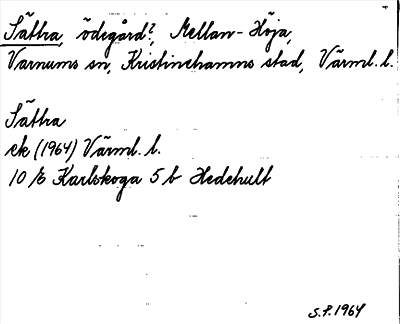 Sättra, ödegård?, Mellan-Höja,
Varnums sn, Kristinehamns stad, Värml. l.
Sättra
ek (1964) Värml. l.
10 E Karlskoga 5 b Hedehult
S.P. 1964